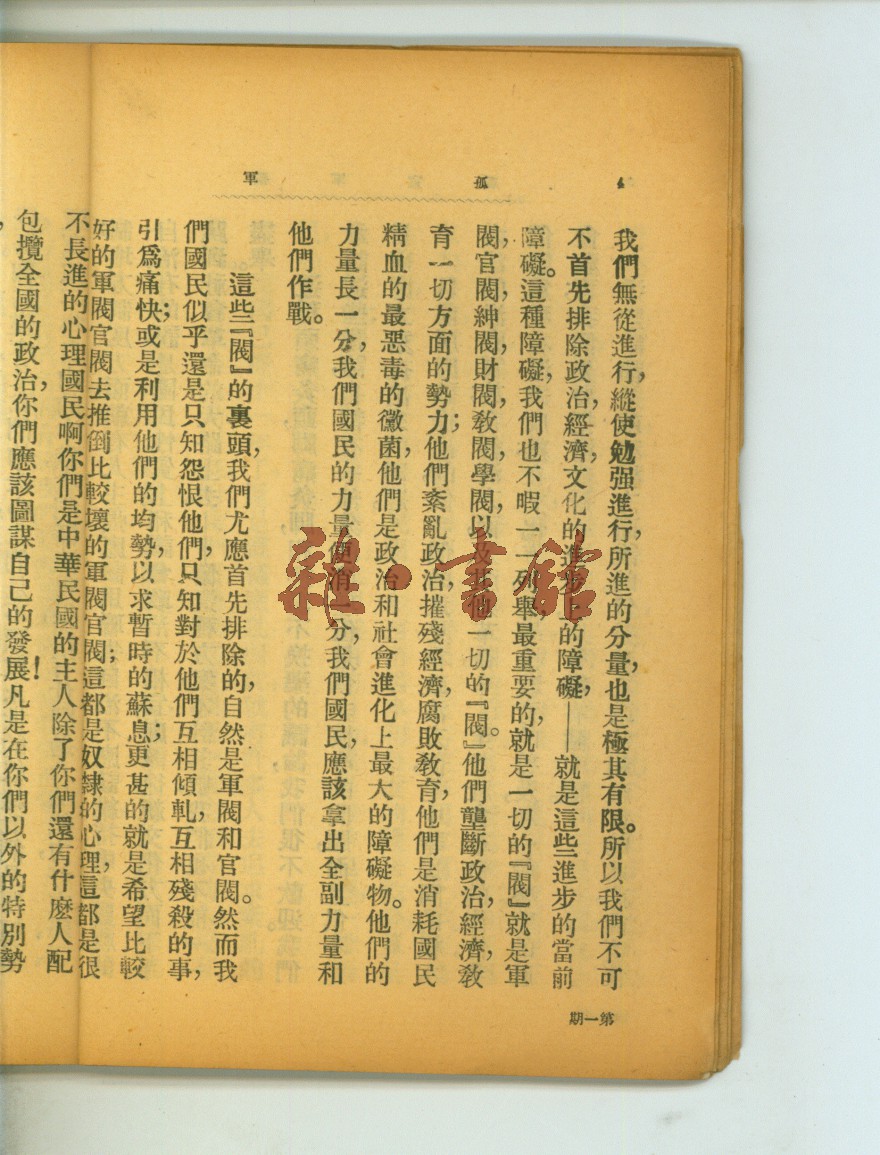 4　孤　軍
我們無從進行，縱使勉强進行，所進的分量，也是極其有限。所以我們不可
不首先排除政治，經濟，文化的進步上的障礙，——就是這些進步的當前
障礙。這種障礙，我們也不暇一一列舉，最重要的，就是一切的『閥』就是軍
閥，官閥，紳閥，財閥，敎閥，學閥，以及其他一切的『閥』。他們壟斷政治，經濟，敎
育一切方面的勢力；他們紊亂政治，摧殘經濟，腐敗敎育，他們是消耗國民
精血的最惡毒的黴菌，他們是政治和社會進化上最大的障礙物。他們的
力量長一分，我們國民的力量便消一分，我們國民，應該拿出全副力量和
他們作戰。
這些『閥』的裏頭，我們尤應首先排除的，自然是軍閥和官閥。然而我
們國民似乎還是只知怨恨他們，只知對於他們互相傾軋，互相殘殺的事，
引爲痛快；或是利用他們的均勢，以求暫時的蘇息；更甚的就是希望比較
好的軍閥官閥去推倒比較壞的軍閥官閥；這都是奴隸的心理，這都是很
不長進的心理國民啊你們是中華民國的主人除了你們還有什麽人配
包攬全國的政治，你們應該圖謀自己的發展！凡是在你們以外的特別勢
第一期
雜·書館